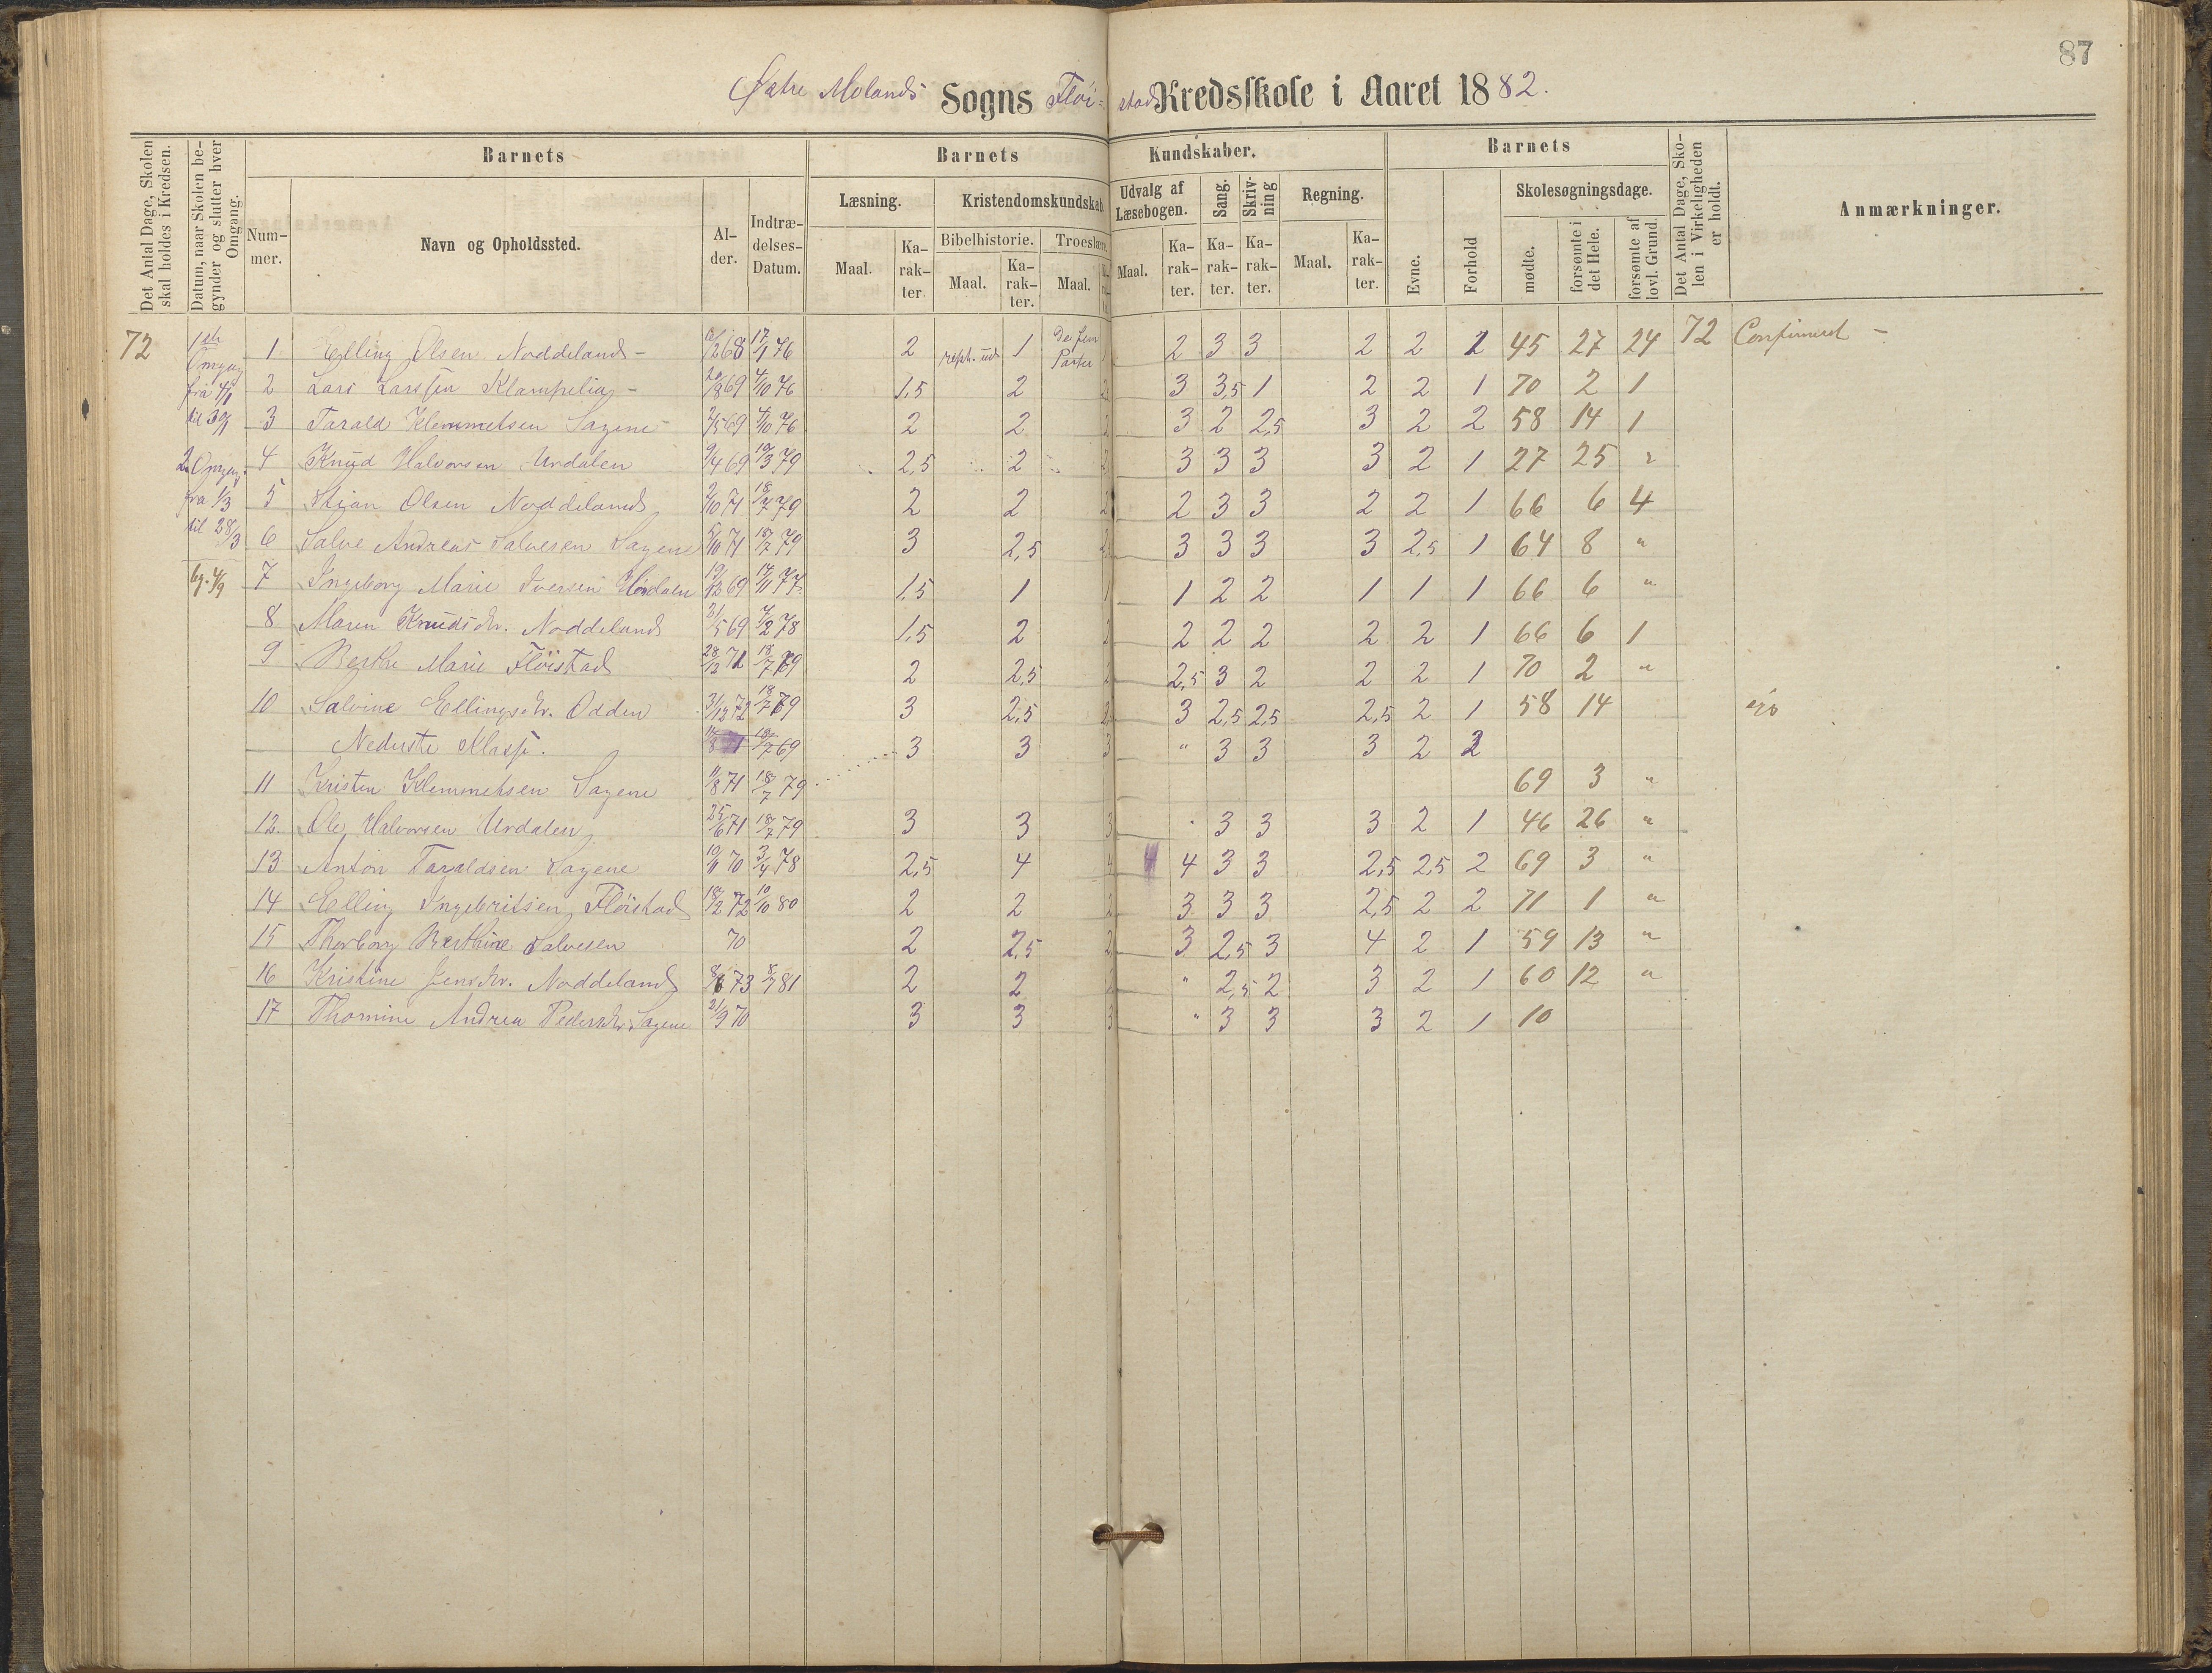 87
Østre Molands Sogns Flöi= stad Kredsskole i Aaret 1882.
Det Antal Dage, Skolen skal holdes i Kredsen.
Datum, naar Skolen begynder og slutter hver Omgang.
Barnets
Nummer.
Navn og Opholdssted.
Alder.
Indtrædelses-Datum.
Barnets Kundskaber.
Læsning.
Maal.
Karakter.
Kristendomskundskab
Bibelhistorie.
Maal.
Karakter.
Troeslære.
Maal.
Udvalg af Læsebogen.
Maal.
Karakter.
Sang.
Karakter.
Skrivning
Karakter.
Regning.
Maal.
Karakter.
Barnets
Evne.
Forhold
Skolesøgningsdage.
mødte.
forsømte i det Hele.
forsømte af lovl. Grund.
Det Antal Dage, Skolen i Virkeligheden er holdt.
Anmærkninger.
72 1ste Omgang 1 Elling Olsen Noddeland - 68 17/1 76 2 1 De fem Parter 2 3 3 2 2 2 45 27 24 72 Confirmert -
fra 4/1 2 Lars Larssen Klampelia - 20/8 69 4/10 76 1,5 2 3 3,5 1 2 2 1 70 2 1
3 Tarald Klemmetsen Sagene 2/5 69 4/10 76 2 2 2 3 2 2,5 3 2 2 58 14 1
2. Omgang 4 Knud Halvorsen Urdalen 9/4 69 19/3 79 2,5 2 3 3 3 3 2 1 27 25 "
fra 1/3 5 Stian Olsen Noddeland 2/10 71 18/7 79 2 2 2 2 3 3 2 2 1 66 6 4
til 28/3 6 Salve Andreas Salvesen Sagene 5/10 71 18/7 79 3 2,5 3 3 3 3 2,5 1 64 8 "
7 Ingeborg Marie Iversen 19/12 69 17/11 77 1,5 1 1 1 2 2 1 1 1 66 6 "
8 Maren Knudsdtr. Noddeland 31/5 69 7/2 78 1,5 2 2 2 2 2 2 2 1 66 6 1
9 Berthe Marie Flöistad 28/12 71 18/7 79 2 2,5 2 2,5 3 2 2 2 1 70 2 "
10 Salvine Ellingsdtr. Odden 3/12 72 18/7 79 3 2,5 3 2,5 2,5 2,5 2 1 58 14
Nederste Klasse. 18/7 69 3 3 3 " 3 3 3 2 2
11 Kristen Klemmetsen Sagene 11/8 71 18/7 79 69 3 "
12. Ole Halvorsen Urdalen 25/6 71 18/7 79 3 3 3 " 3 3 3 2 1 46 26 "
13 Anton Taraldsen Sagene 19/11 70 3/4 78 2,5 4 4 4 4 3 3 2,5 2,5 2 69 3 "
14 Elling Ingebritsen Flöistad 18/2 72 10/10 80 2 2 2 3 3 3 2,5 2 2 71 1 "
15 Thorborg Berthine Salvesen 70 2 2,5 3 2,5 3 4 2 1 59 13 "
16 Kristine Jensdtr. Noddeland 8/6 73 8/7 81 2 2 2 " 2,5 2 3 2 1 60 12 "
17 Thomine Andrea Pedersdtr. Sagene 21/9 70 3 3 3 " 3 3 3 2 1 10